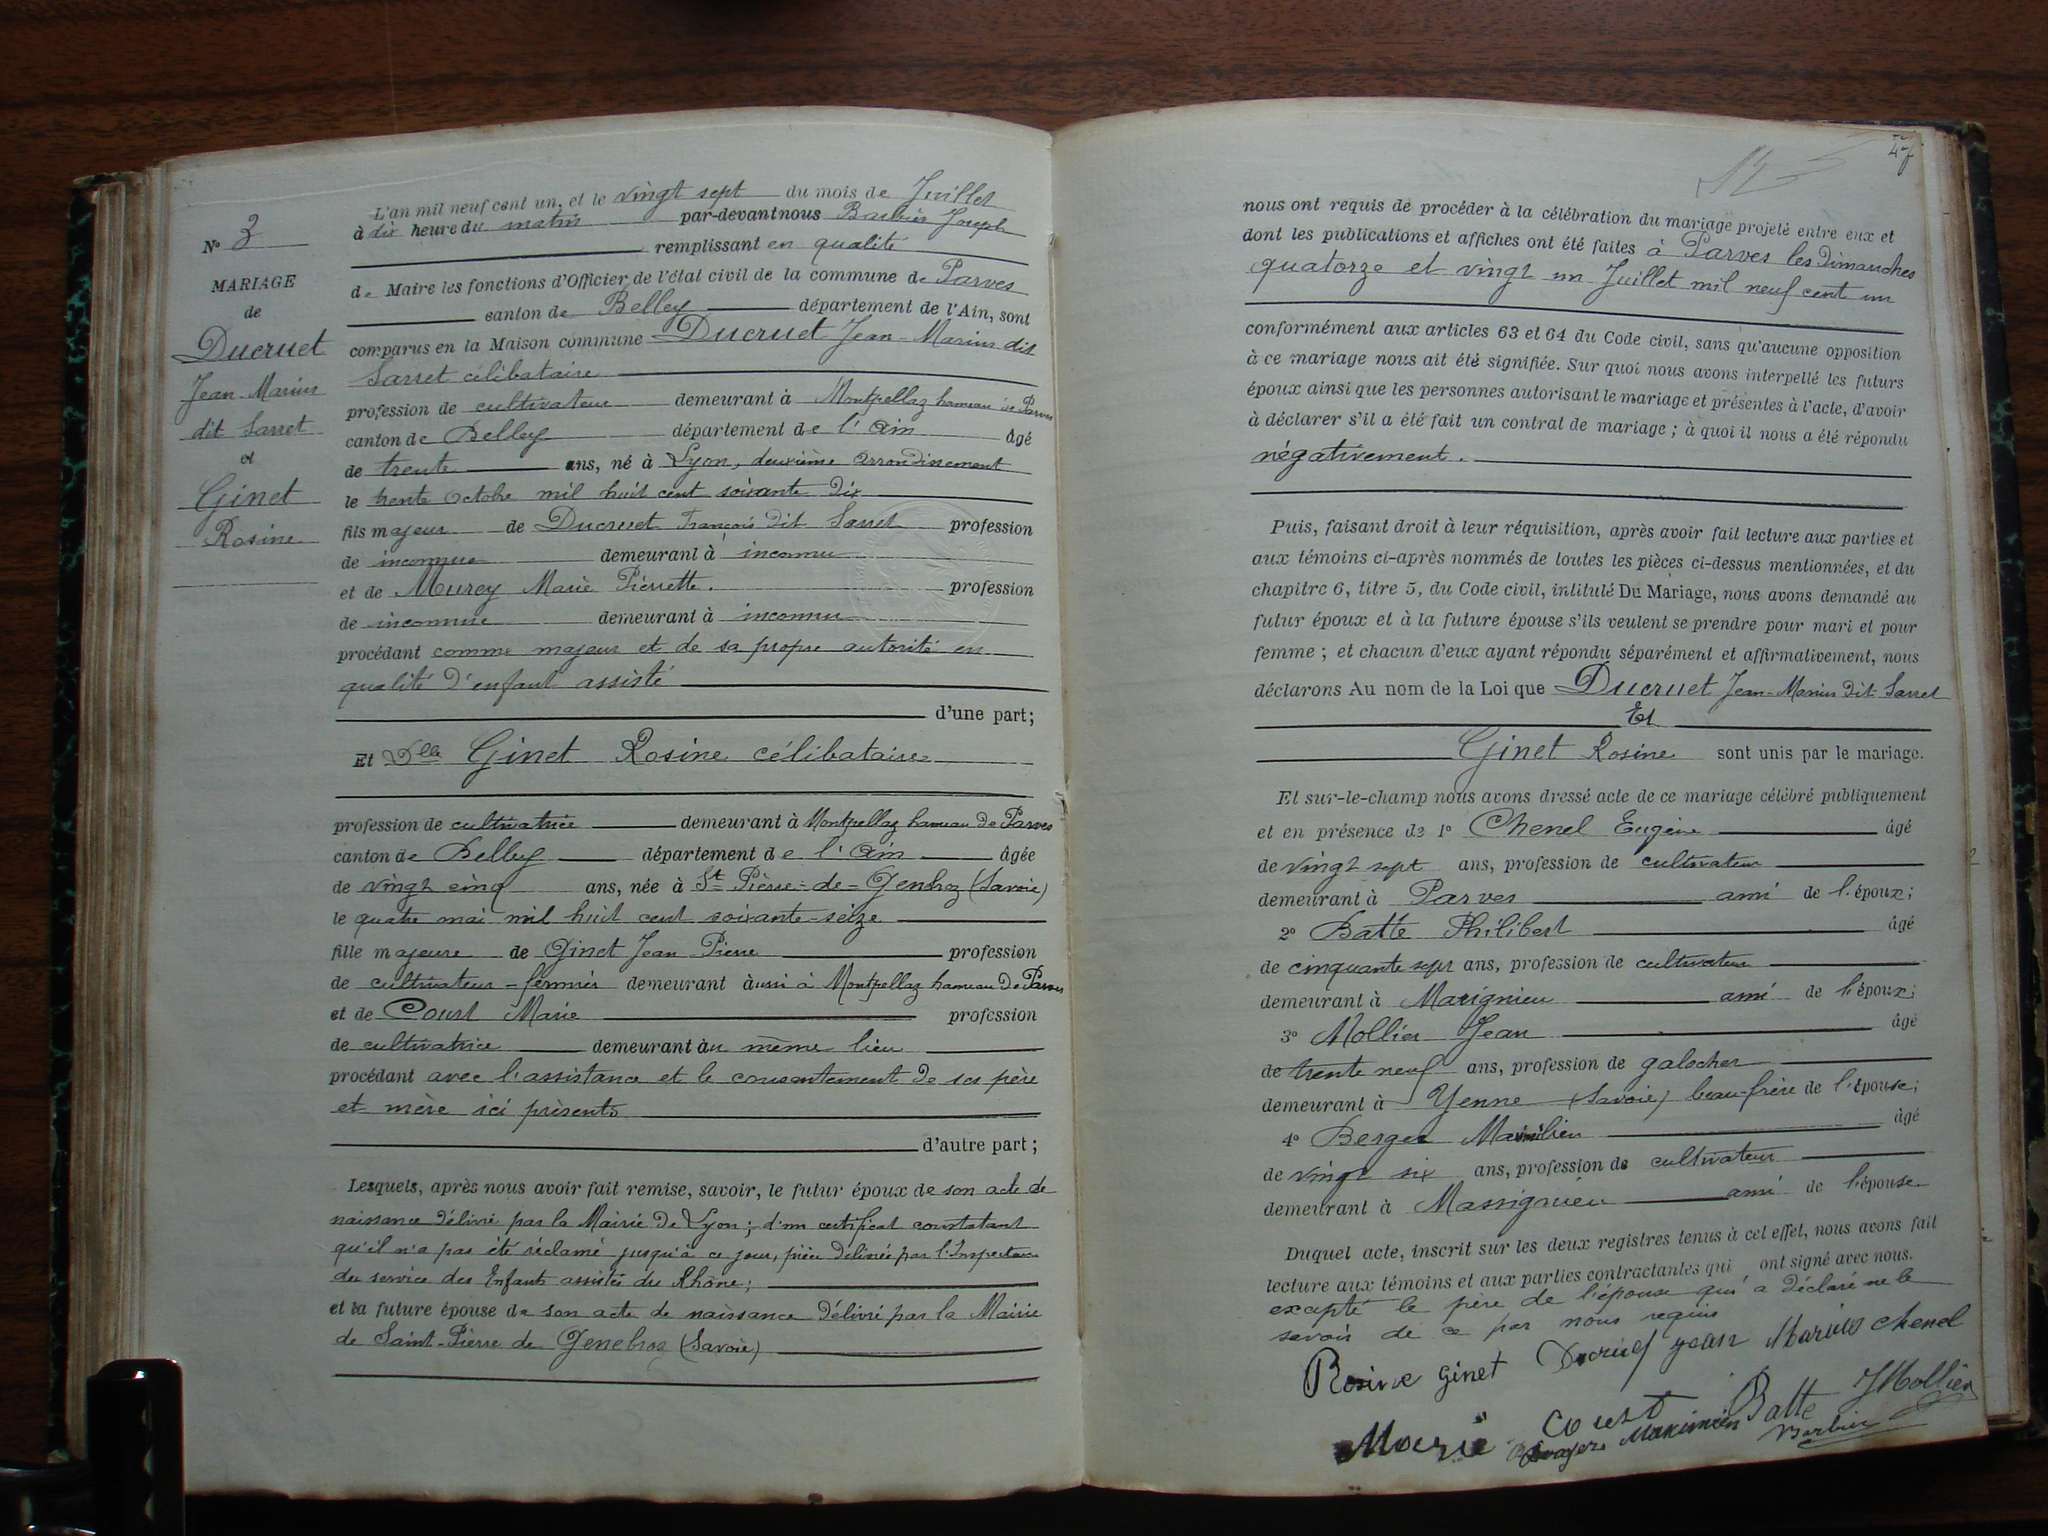 L'an mil neuf cent un, et le vingt sept du mois de Juillet
à dix heure du matin par-devant nous Barbier Joseph
remplissant en qualité
de Maire les fonctions d'Officier de l'état civil de la commune de Parves
canton de Belley département de l'Ain, sont
comparus en la Maison commune Ducruet Jean-Marius dit
Sarret célibataire
profession de cultivateur demeurant à Montpellaz hameau de Parves
canton de Belley département de l'Ain âgé
de trente ans, né à Lyon, deuxième arrondissement
le trente Octobre mil huit cent soixante dix
fils majeur de Ducruet François dit Sarret profession
de inconnue demeurant à inconnu
et de Murey Marie Pierrette. profession
de inconnue demeurant à inconnu
procédant comme majeur et de sa propre autorité en
qualité d'enfant assisté
d'une part;
Et Dlle Ginet Rosine célibataire
profession de cultivatrice demeurant à Montpellaz hameau de Parves
canton de Belley département de l'Ain âgée
de vingt cinq ans, née à St Pierre-de-Genebroz (Savoie)
le quatre mai mil huit cent soixante-seize
fille majeure de Ginet Jean Pierre profession
de cultivateur-fermier demeurant aussi à Montpellaz hameau de Parves
et de Coust Marie profession
de cultivatrice demeurant au même lieu
procédant avec l'assistance et le consentement de ses père
et mère ici présents
d'autre part;
Lesquels, après nous avoir fait remise, savoir, le futur époux de son acte de
naissance délivré par la Mairie de Lyon; d'un certificat constatant
qu'il n'a pas été réclamé jusqu'à ce jour, pièce délivrée par l'Inspecteur
du service des Enfants assistés du Rhône;
et la future épouse de son acte de naissance délivré par la Mairie
de Saint-Pierre de Genebroz (Savoie)
No 3
MARIAGE
de
Ducruet
Jean-Marius
dit Sarret
et
Ginet
Rosine
47
nous ont requis de procéder à la célébration du mariage projeté entre eux et
dont les publications et affiches ont été faites à Parves les Dimanches
quatorze et vingt un Juillet mil neuf cent un
conformément aux articles 63 et 64 du Code civil, sans qu'aucune opposition
à ce mariage nous ait été signifiée. Sur quoi nous avons interpellé les futurs
époux ainsi que les personnes autorisant le mariage et présentes à l'acte, d'avoir
à déclarer s'il a été fait un contrat de mariage; à quoi il nous a été répondu
négativement.
Puis, faisant droit à leur réquisition, après avoir fait lecture aux parties et
aux témoins ci-après nommés de toutes les pièces ci-dessus mentionnées, et du
chapitre 6, titre 5, du Code civil, intitulé Du Mariage, nous avons demandé au
futur époux et à la future épouse s'ils veulent se prendre pour mari et pour
femme; et chacun d'eux ayant répondu séparément et affirmativement, nous
déclarons Au nom de la Loi que Ducruet Jean-Marius dit Sarret
Et
Ginet Rosine sont unis par le mariage.
Et sur-le-champ nous avons dressé acte de ce mariage célébré publiquement
et en présence de 1o Chenel Eugène âgé
de vingt sept ans, profession de cultivateur
demeurant à Parves ami de l'époux;
2o Batte Philibert âgé
de cinquante sept ans, profession de cultivateur
demeurant à Marignieu ami de l'époux;
3o Mollier Jean âgé
de trente neuf ans, profession de galocher
demeurant à Yenne (Savoie) beau-frère de l'épouse;
4o Berger Maximilien âgé
de vingt six ans, profession de cultivateur
demeurant à Massignieu ami de l'épouse.
Duquel acte, inscrit sur les deux registres tenus à cet effet, nous avons fait
lecture aux témoins et aux parties contractantes qui ont signé avec nous.
excepté le père de l'épouse qui a déclaré ne le
savoir de ce par nous requis
Rosine Ginet Ducruet Jean Marius Chenel
Marie Coust Batte JMollier
Maximilien Barbier